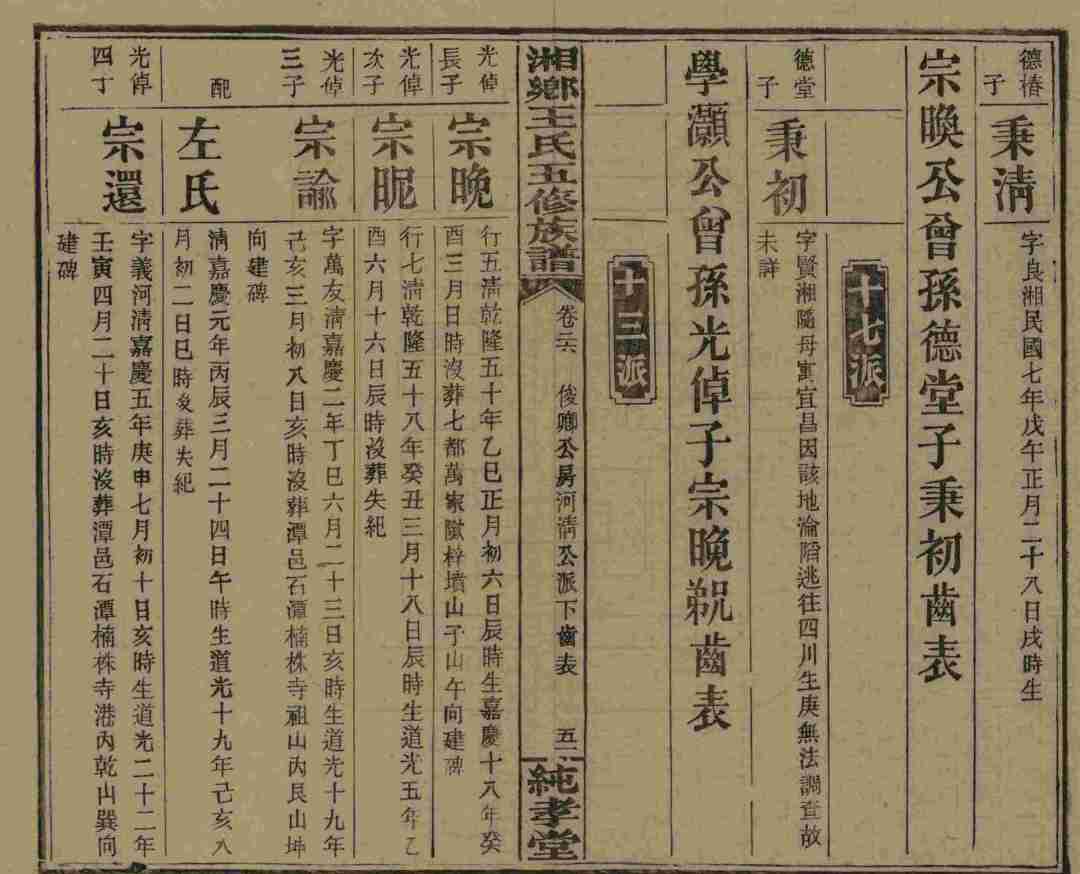 德椿
子
秉淸
字良湘民國七年戊午正月二十八日戌時生
宗㬇公曾孫德堂子秉初齒表
十七派
德堂
子
秉初
字賢湘隨母寓宜昌因該地淪陷逃往四川生庚無法調查故
未詳
學灝公曾孫光倬子宗晚㒭齒表
十三派
湘鄉王氏五修族譜
卷三六
俊卿公房河淸公派下齒表
五二
純孝堂
光倬
長子
宗晚
行五淸乾隆五十年乙巳正月初六日辰時生嘉慶十八年癸
酉三月日時沒葬七都萬家獄梓墳山子山午向建碑
光倬
次子
宗昵
行七淸乾隆五十八年癸丑三月十八日辰時生道光五年乙
酉六月十六日辰時沒葬失紀
光倬
三子
宗諭
字萬友淸嘉慶二年丁巳六月二十三日亥時生道光十九年
己亥三月初八日亥時沒葬潭邑石潭楠株寺祖山內艮山坤
向建碑
配
左氏
淸嘉慶元年丙辰三月二十四日午時生道光十九年己亥八
月初二日巳時歿葬失紀
光倬
四丁
宗還
字義河淸嘉慶五年庚申七月初十日亥時生道光二十二年
壬寅四月二十日亥時沒葬潭邑石潭楠株寺港內乾山巽向
建碑